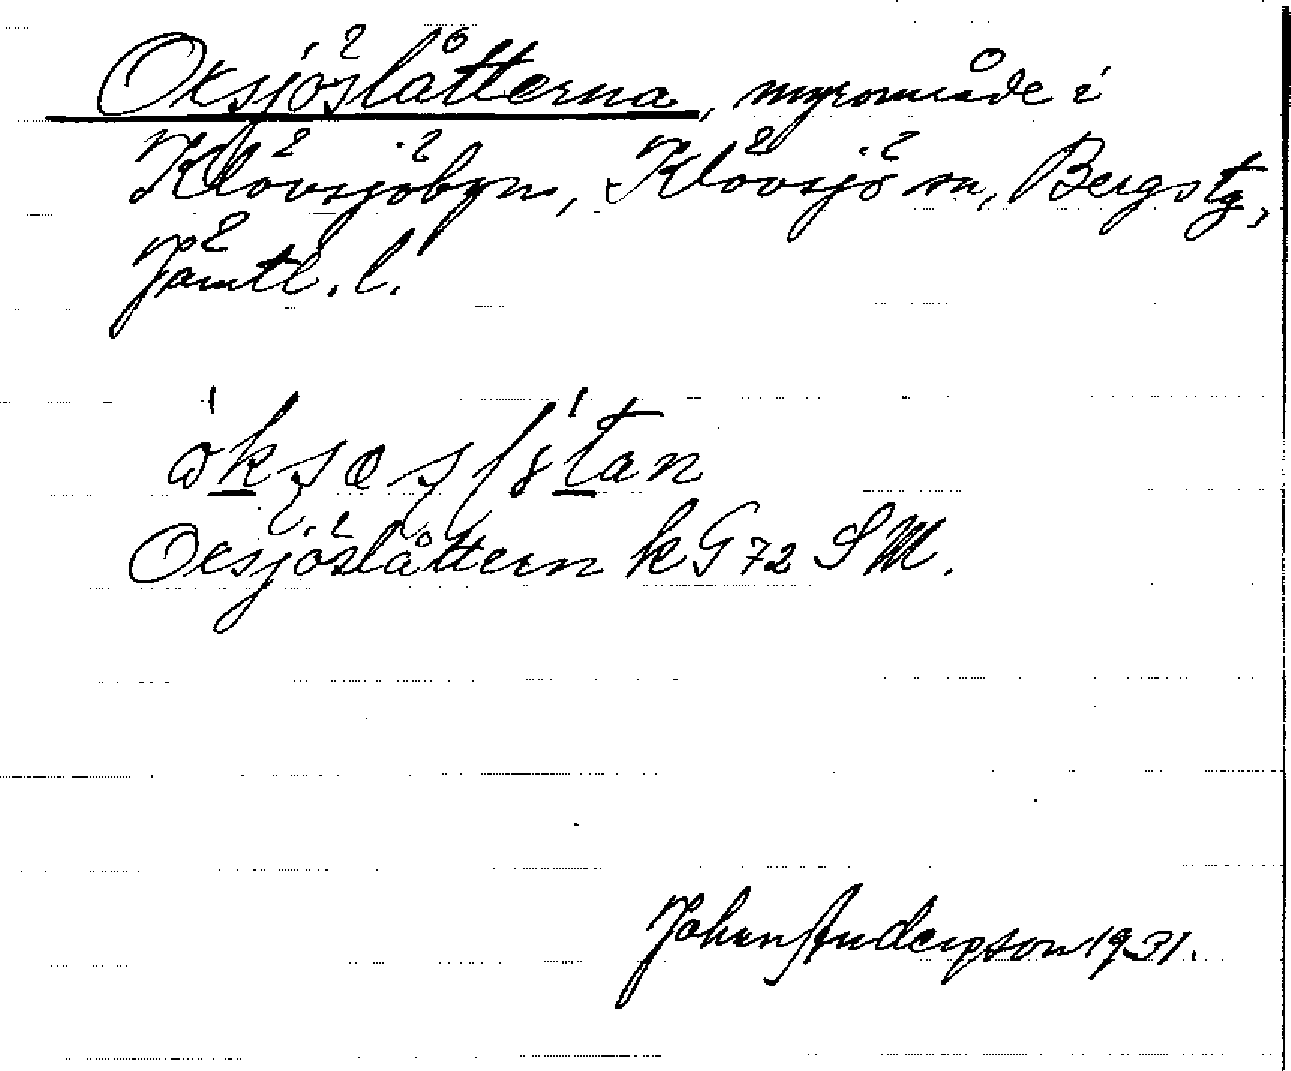 Oxsjöslåtterna, myrområde i
Klövsjöbyn, Klövsjö sn, Bergs tg,
Jämtl. l.
Oxsjöslåttern k G 72 SM.
John Anderson 1931.